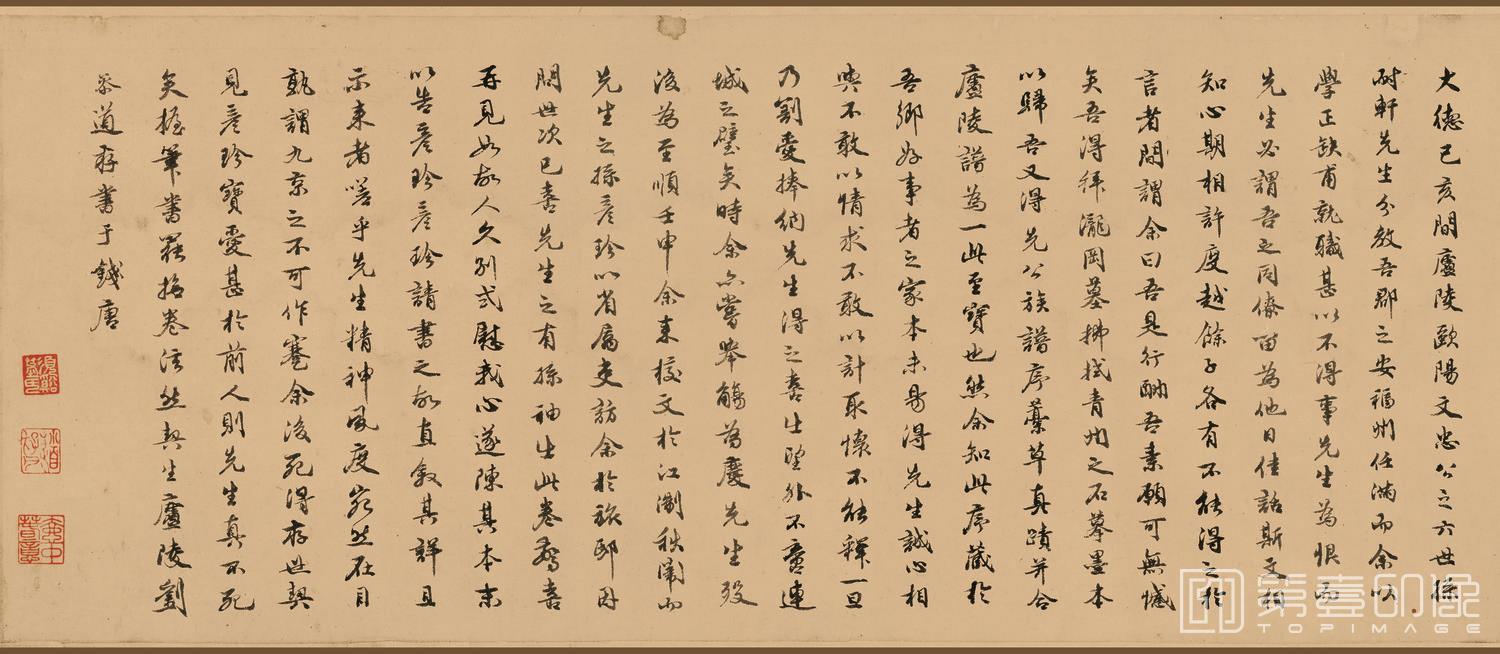 大德己亥間廬陵歐陽文忠公之六世孫
耐軒先生分教吾郡之安福州任滿而余以
學正缺甫就職甚以不得事先生為恨而
先生必謂吾之同僚留為他日佳話斯文相
知心期相許度越餘子各有不能得之於
言者間謂余曰吾是行酬吾素願可無憾
矣吾得拜瀧岡墓拂拭青州之石摹墨本
以歸吾又得先公族譜序藁草真蹟并合
廬陵譜為一此至寶也然余知此序藏於
吾鄉好事者之家本未易得先生誠心相
與不敢以情求不敢以計取懷不能釋一旦
乃割愛捧納先生得之喜出望外不啻連
城之璧矣時余亦嘗舉觴為慶先生歿
後為至順壬申余來校文於江淛秩闈而
先生之孫彥珍以省屬吏訪余於旅邸因
問世次已喜先生之有孫袖出此卷驚喜
再見如故人久別式慰我心遂陳其本末
以告彥珍彥珍請書之故直敘其詳且
示來者嗟乎先生精神風度宛然在目
孰謂九京之不可作蹇余後死得存世契
見彥珍寶愛甚於前人則先生真不死
矣握筆嘗罷掩卷泫然契生廬陵劉
岳道存書于錢唐
第壹印像
TOPIMAGE